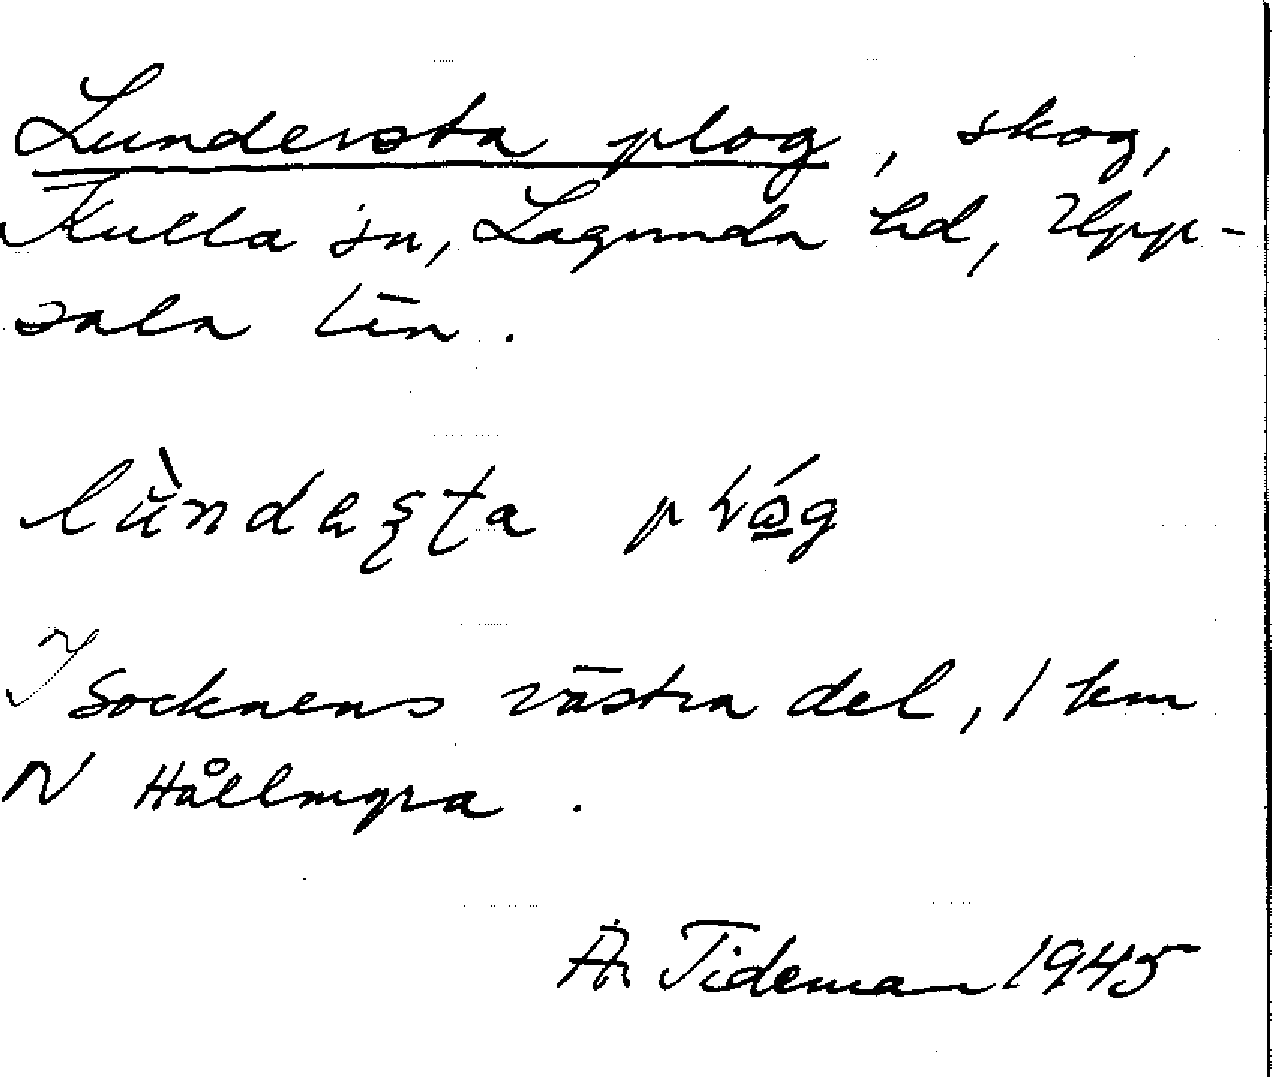 Lundersta plog, skog,
Kulla sn, Lagunda hd, Upp-
sala län.
I Socknens västra del, 1 km
N Hållmyra.
Tideman 1945